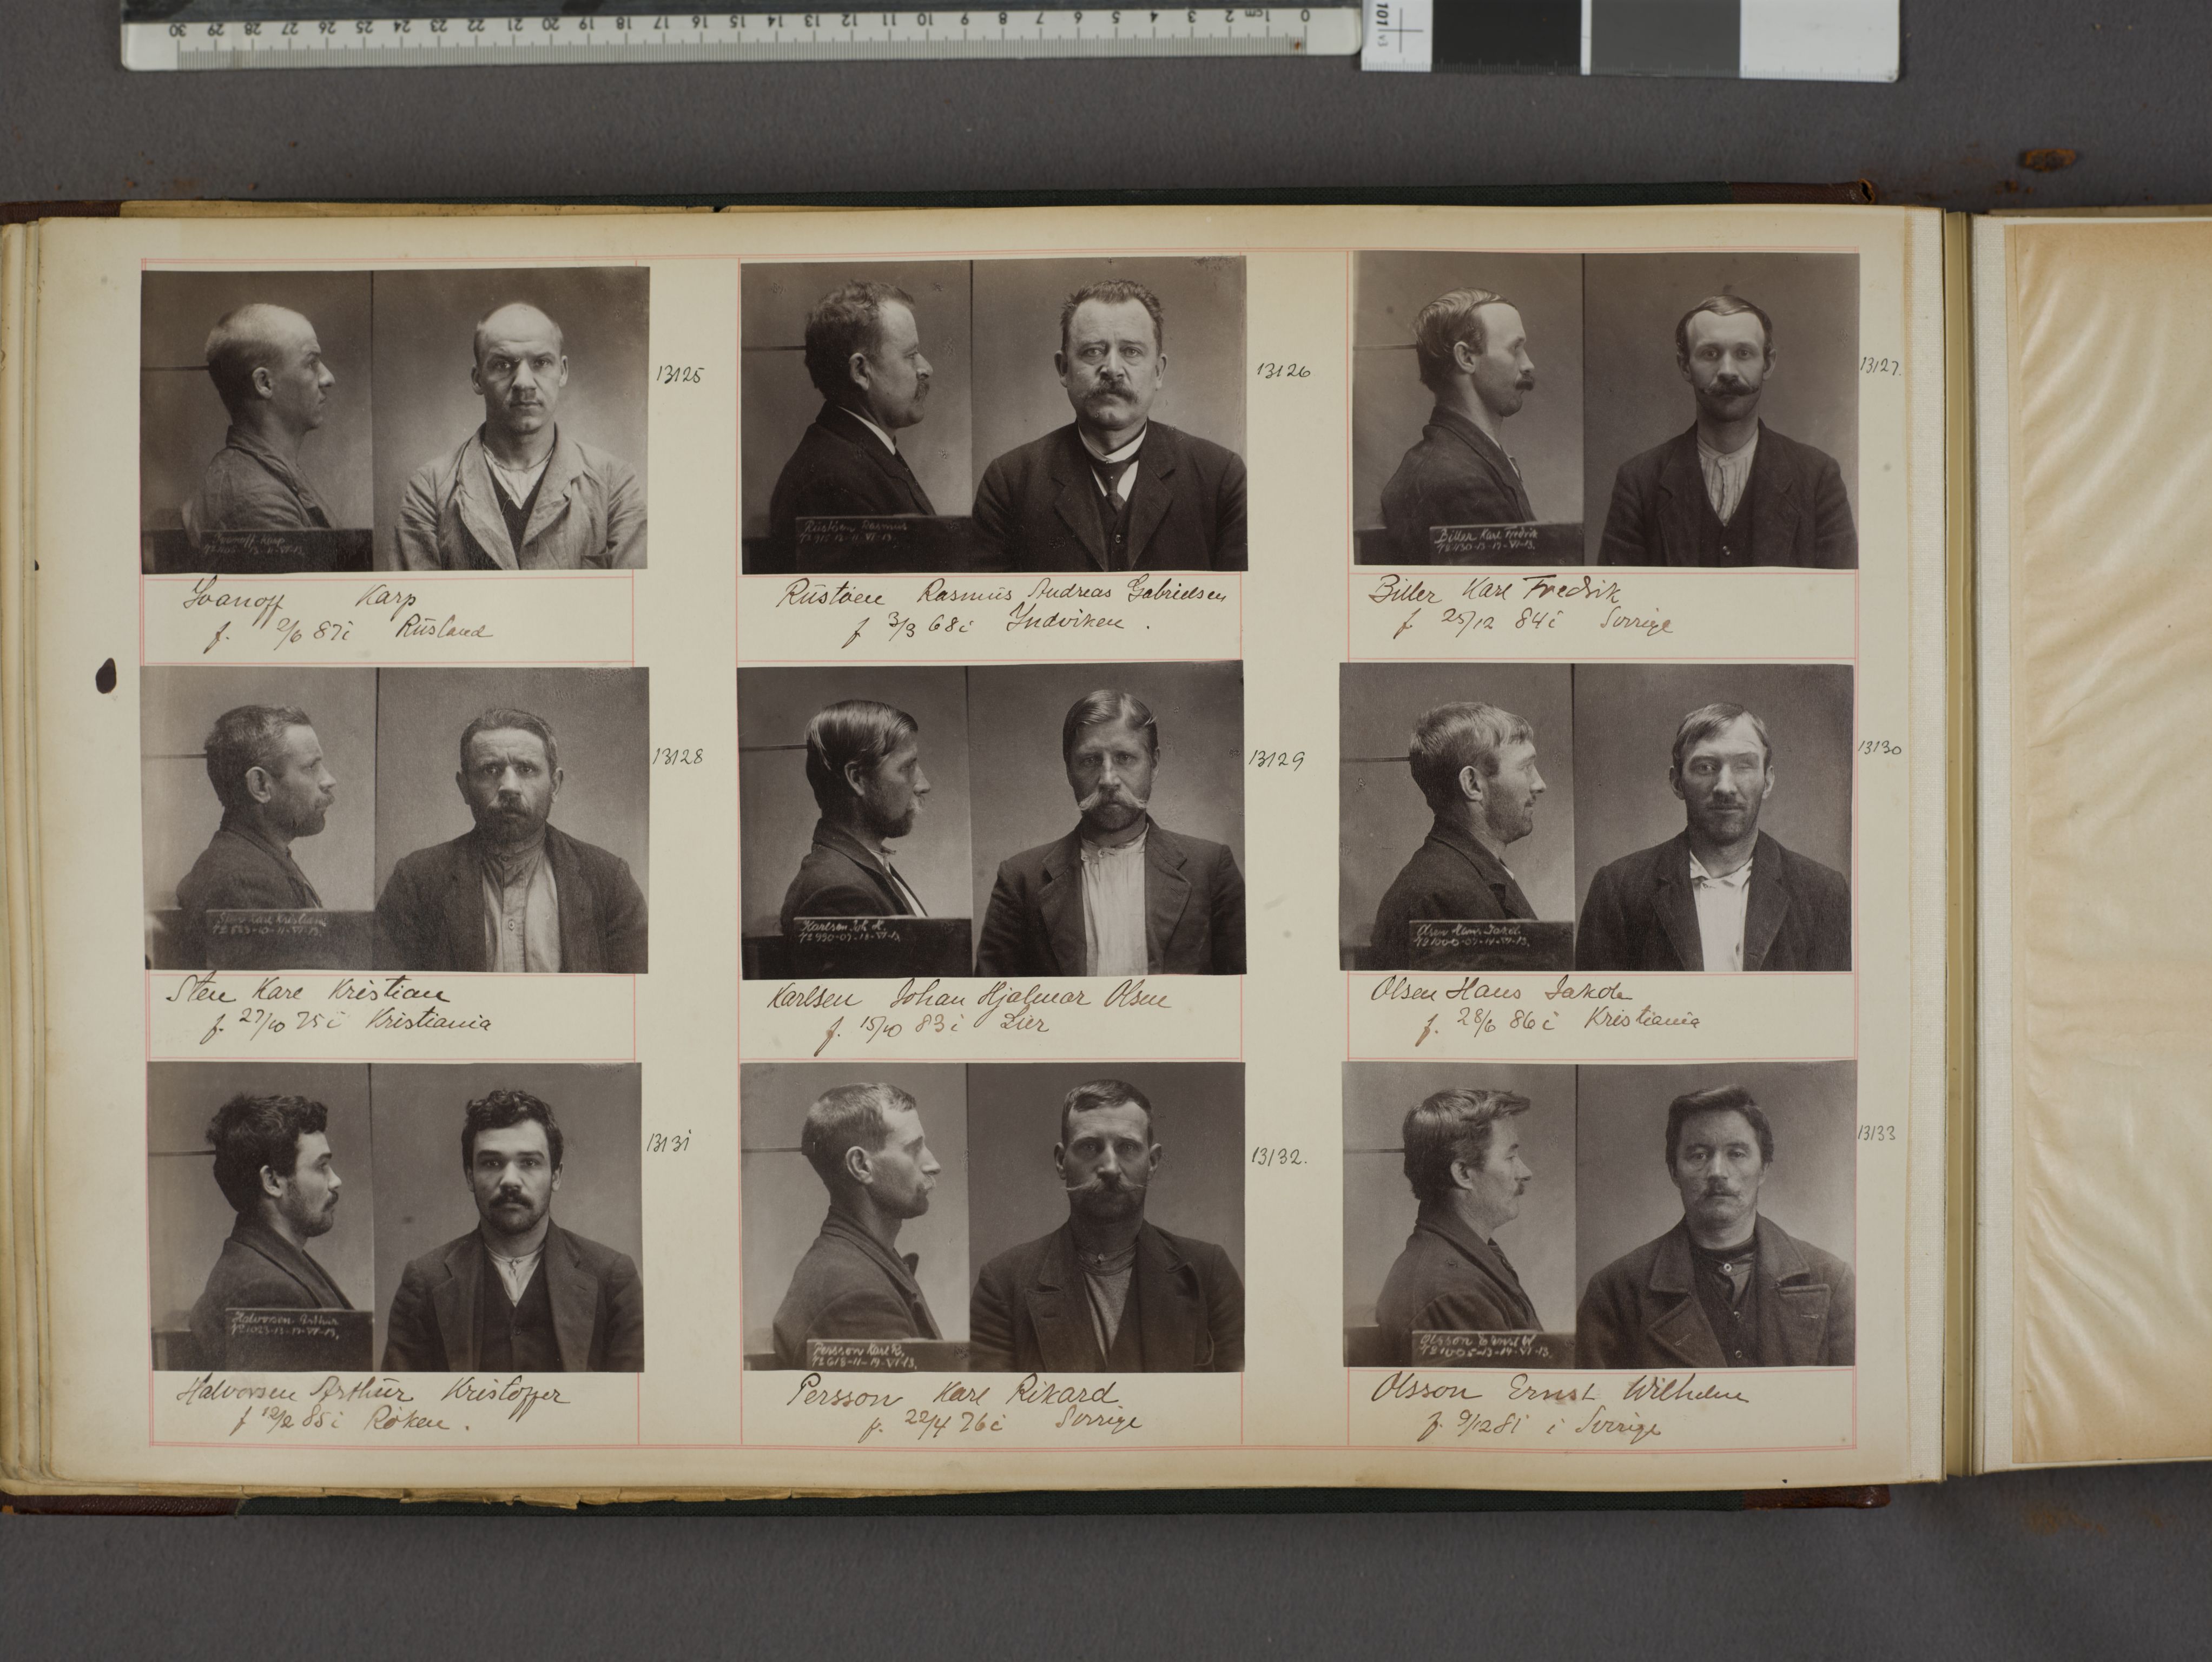 30 29 28 27 26 25 24 23 22 21 20 19 18 17 16 15 14 13 12 11 10 9 8 7 6 5 4 3 2 1cm 0
101 v3
13125
Ivanoff Karp
f. 2/6 87 i Rusland
13126
Rustøen Rasmus
Rustøen Rasmus Andreas Gabrielsen
f 3/3 68 i Indviken.
13127.
Biller Karl Fredrik
Biller Karl Fredrik
f 25/12 84 i Sverige
13128
Sten Karl Kristian
Sten Karl Kristian
f. 27/10 75 i Kristiania
13129
Karlsen Joh. H.
Karlsen Johan Hjalmar Olsen
f. 15/10 83 i Lier
13130
Olsen Hans Jakob
Olsen Hans Jakob
f. 28/6 86 i Kristiania
13131
Halvorsen Arthur
Halvorsen Arthur Kristoffer
f 12/2 85 i Røken.
13132.
Persson Karl R.
№ 618-11-19-VI-13.
Persson Karl Rikard
f. 22/4 76 i Sverige
13133
Olsson Ernst W.
№ 1005-13-19-VI-13.
Olsson Ernst Wilhelm
f. 9/12 81 i Sverige